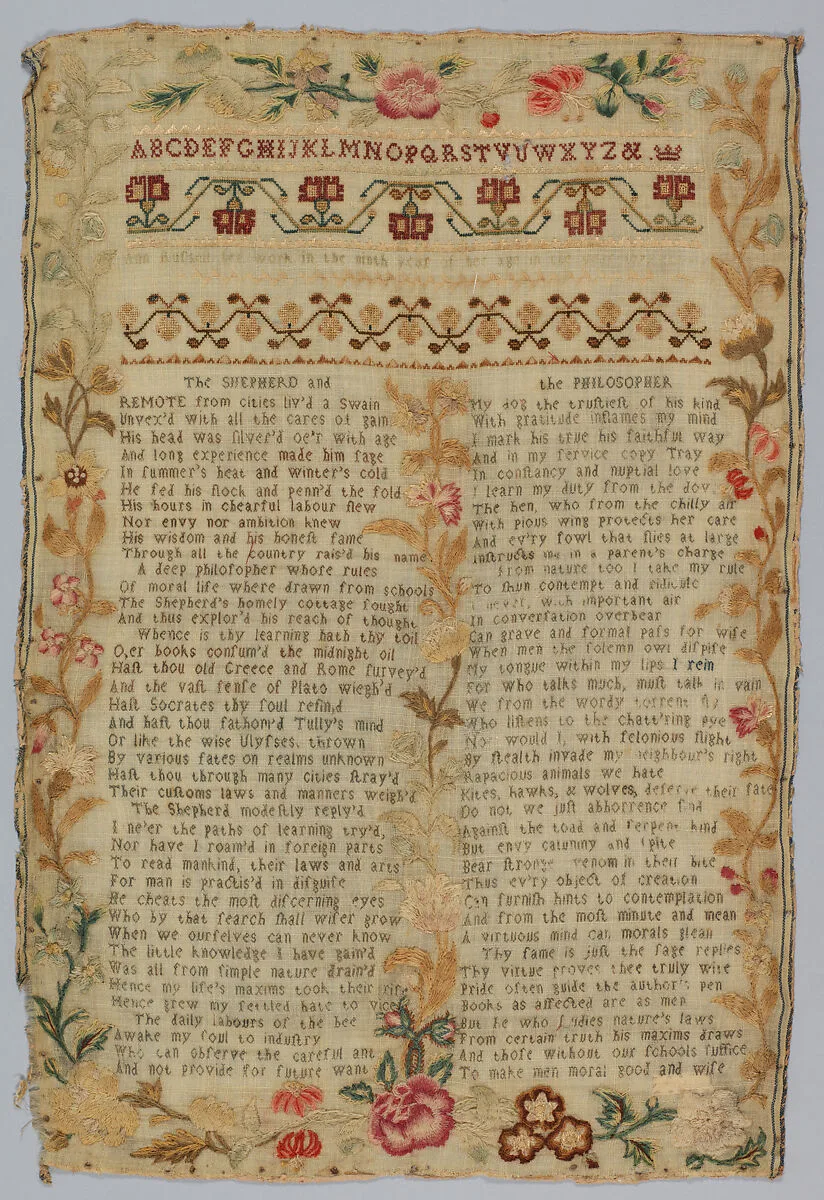 ABCDEFGHIJKLMNOPQRSTVUWXYZ&.
Ann work in the ninth year of her age
The SHEPHERD and
REMOTE from cities liv'd a Swain
Unvex'd with all the cares of gain
His head was ſilver'd oe'r with age
And long experience made him ſage
In ſummer's heat and winter's cold
He fed his flock and penn'd the fold
His hours in chearful labour flew
Nor envy nor ambition knew
His wisdom and his honeſt fame
Through all the country rais'd his name
A deep philoſopher whoſe rules
Of moral life where drawn from schools
The Shepherd's homely cottage ſought
And thus explor'd his reach of thought
Whence is thy learning hath thy toil
O,er books conſum'd the midnight oil
Haſt thou old Greece and Rome ſurvey'd
And the vaſt ſenſe of Plato wiegh'd
Haſt Socrates thy ſoul refin,d
And haſt thou fathom'd Tully's mind
Or like the wise Ulyſses, thrown
By various fates on realms unknown
Haſt thou through many cities ſtray'd
Their cuſtoms laws and manners weigh'd
The Shepherd modeſtly reply'd
I ne'er the paths of learning try'd,
Nor have I roam'd in foreign parts
To read mankind, their laws and arts
For man is practis'd in diſguiſe
He cheats the moſt diſcerning eyes
Who by that ſearch ſhall wiſer grow
When we ourſelves can never know
The little knowledge I have gain'd
Was all from ſimple nature drain'd
Hence my life's maxims took their riſe
Hence grew my ſettled hate to vice
The daily labours of the bee
Awake my ſoul to induſtry
Who can obſerve the careful ant
And not provide for future want
the PHILOSOPHER
My dog the truſtieſt of his kind
With gratitude inflames my mind
I mark his true his faithful way
And in my ſervice copy Tray
In conſtancy and nuptial love
I learn my duty from the dov
The hen, who from the chilly air
With pious wing protects her care
And ev'ry fowl that flies at large
Inſtructs me in a parent's charge
from nature too I take my rule
To ſhun contempt and ridicule
I never, with important air
In converſation overbear
Can grave and formal paſs for wiſe
When men the ſolemn owl diſpiſe
My tongue within my lips I rein
For who talks much, muſt talk in vain
We from the wordy torrent fly
Who liſtens to the chatt'ring pye
Nor would I, with felonious flight
By ſtealth invade my neighbour's right
Rapacious animals we hate
Kites, hawks, & wolves, deſerve their fate
Do not we juſt abhorrence find
Against the toad and ſerpent kind
But envy calumny and ſpite
Bear ſtronger venom in their bite
Thus ev'ry object of creation
Can furniſh hints to contemplation
And from the moſt minute and mean
A virtuous mind can morals glean
Thy fame is juſt the ſage replies
Thy virtue proves thee truly wiſe
Pride often guide the author's pen
Books as affected are as men
But he who ſtudies nature's laws
From certain truth his maxims draws
And thoſe without our ſchools ſuffice
To make men moral good and wiſe